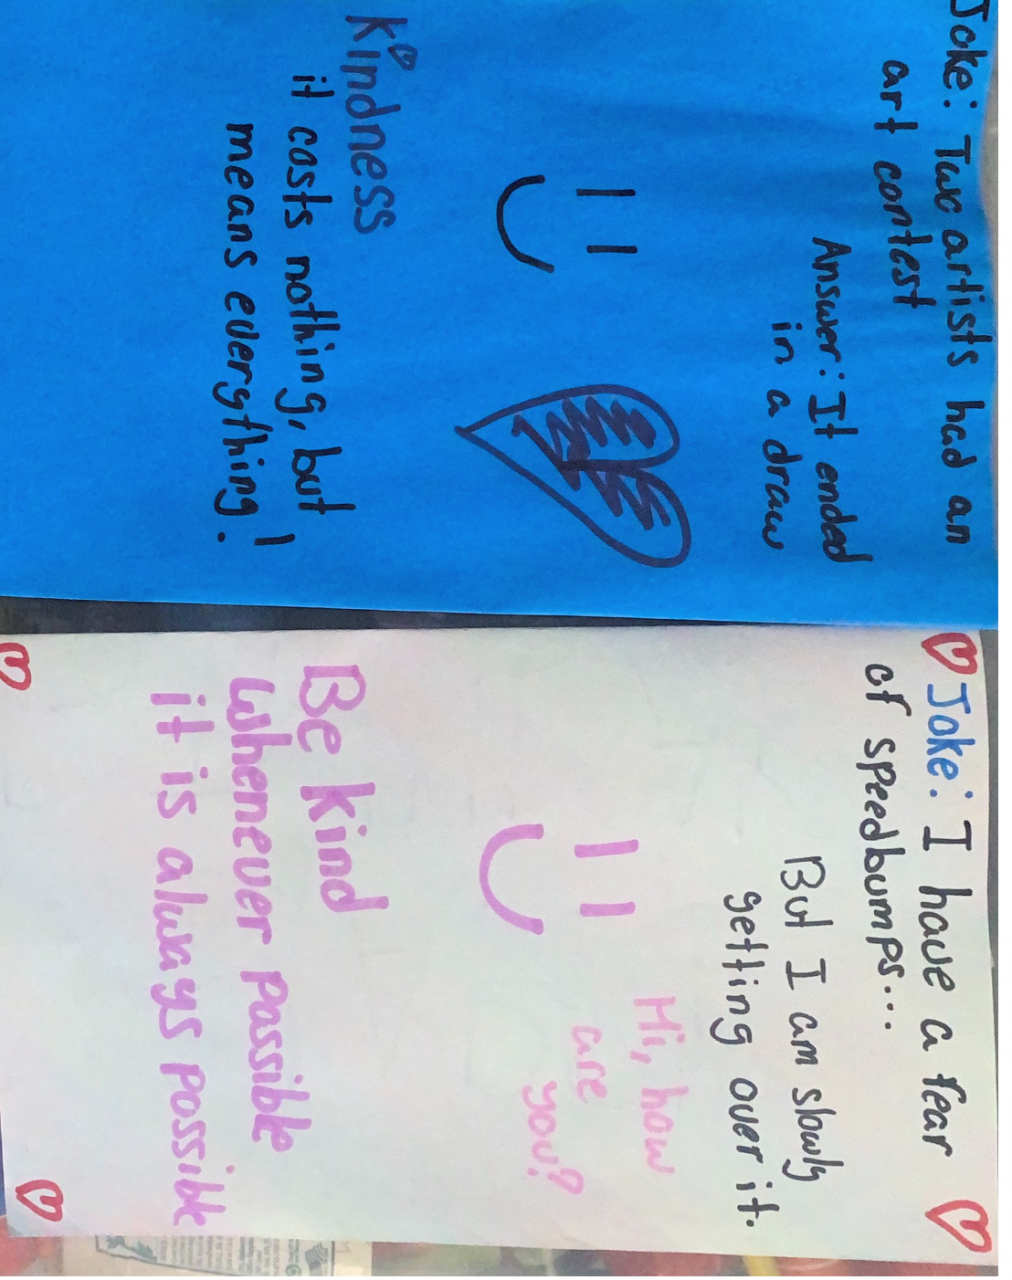 Joke: Two artists had an
art contest
Answer: It ended
in a draw
Kindness
it costs nothing, but
means everything!
Joke: I have a fear
of speedbumps...
But I am slowly
getting over it.
Hi, how
are
you?
Be kind
whenever possible
it is always possible